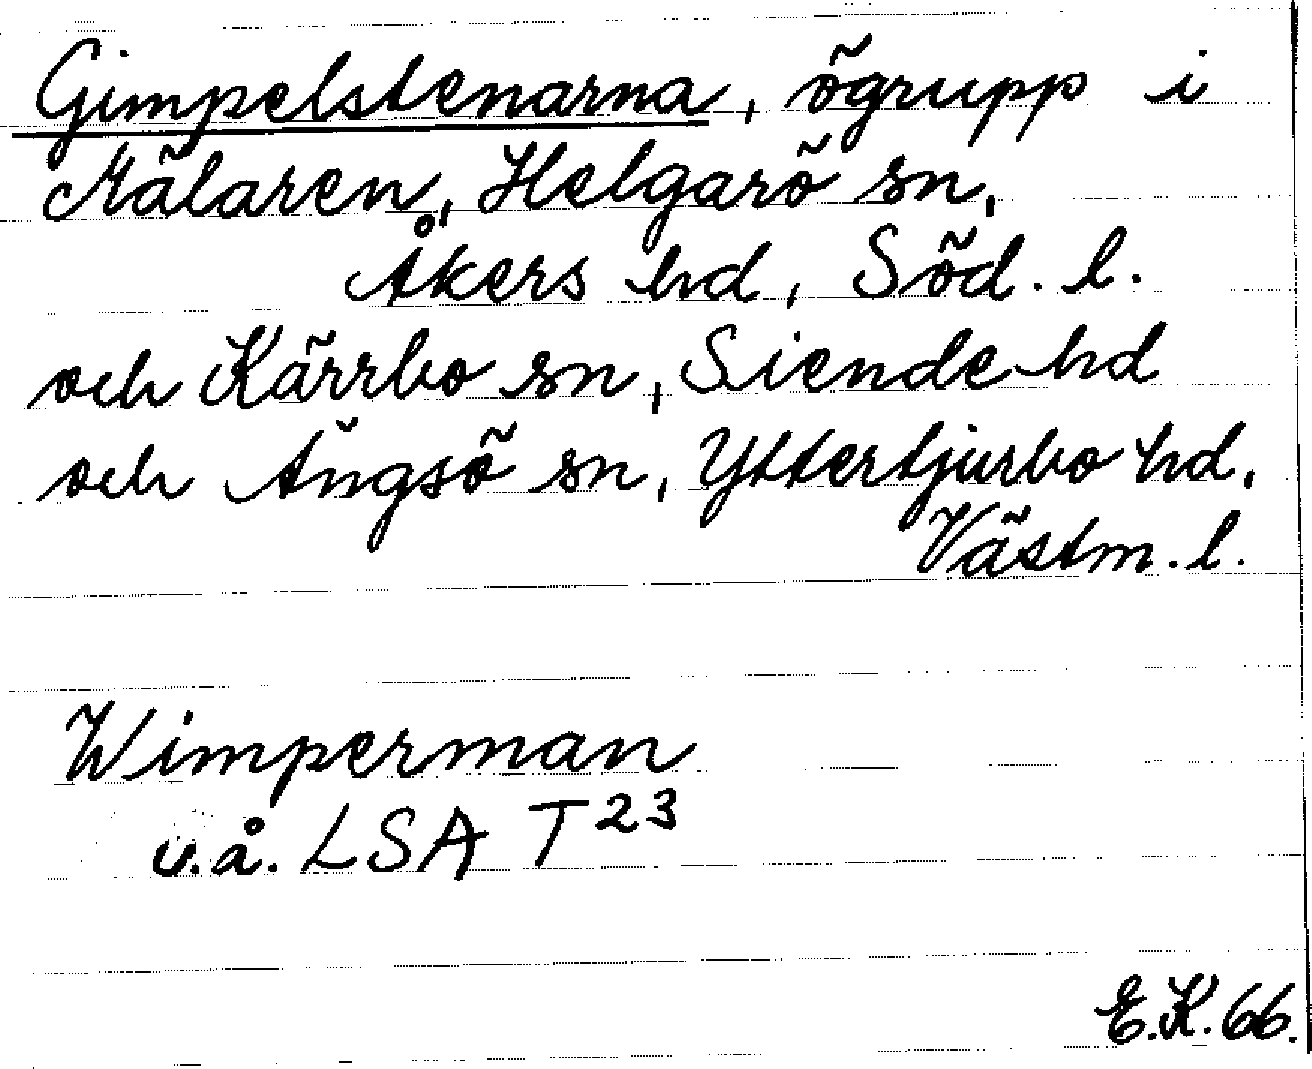 Gimpelstenarna, ögrupp i
Mälaren, Helgarö sn,
Åkers hd, Söd. l.
och Kärrbo sn, Siende hd
och Ängsö sn, Yttertjurbo hd,
Västm. l.
Wimperman
u.å. LSA T23
E.K. 66.